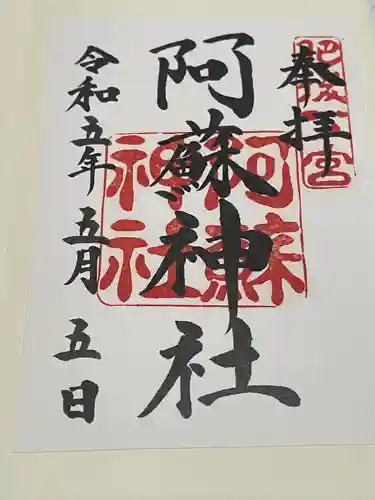 奉拝
肥後一宮
阿蘇神社
阿蘇
神社
令和五年五月五日